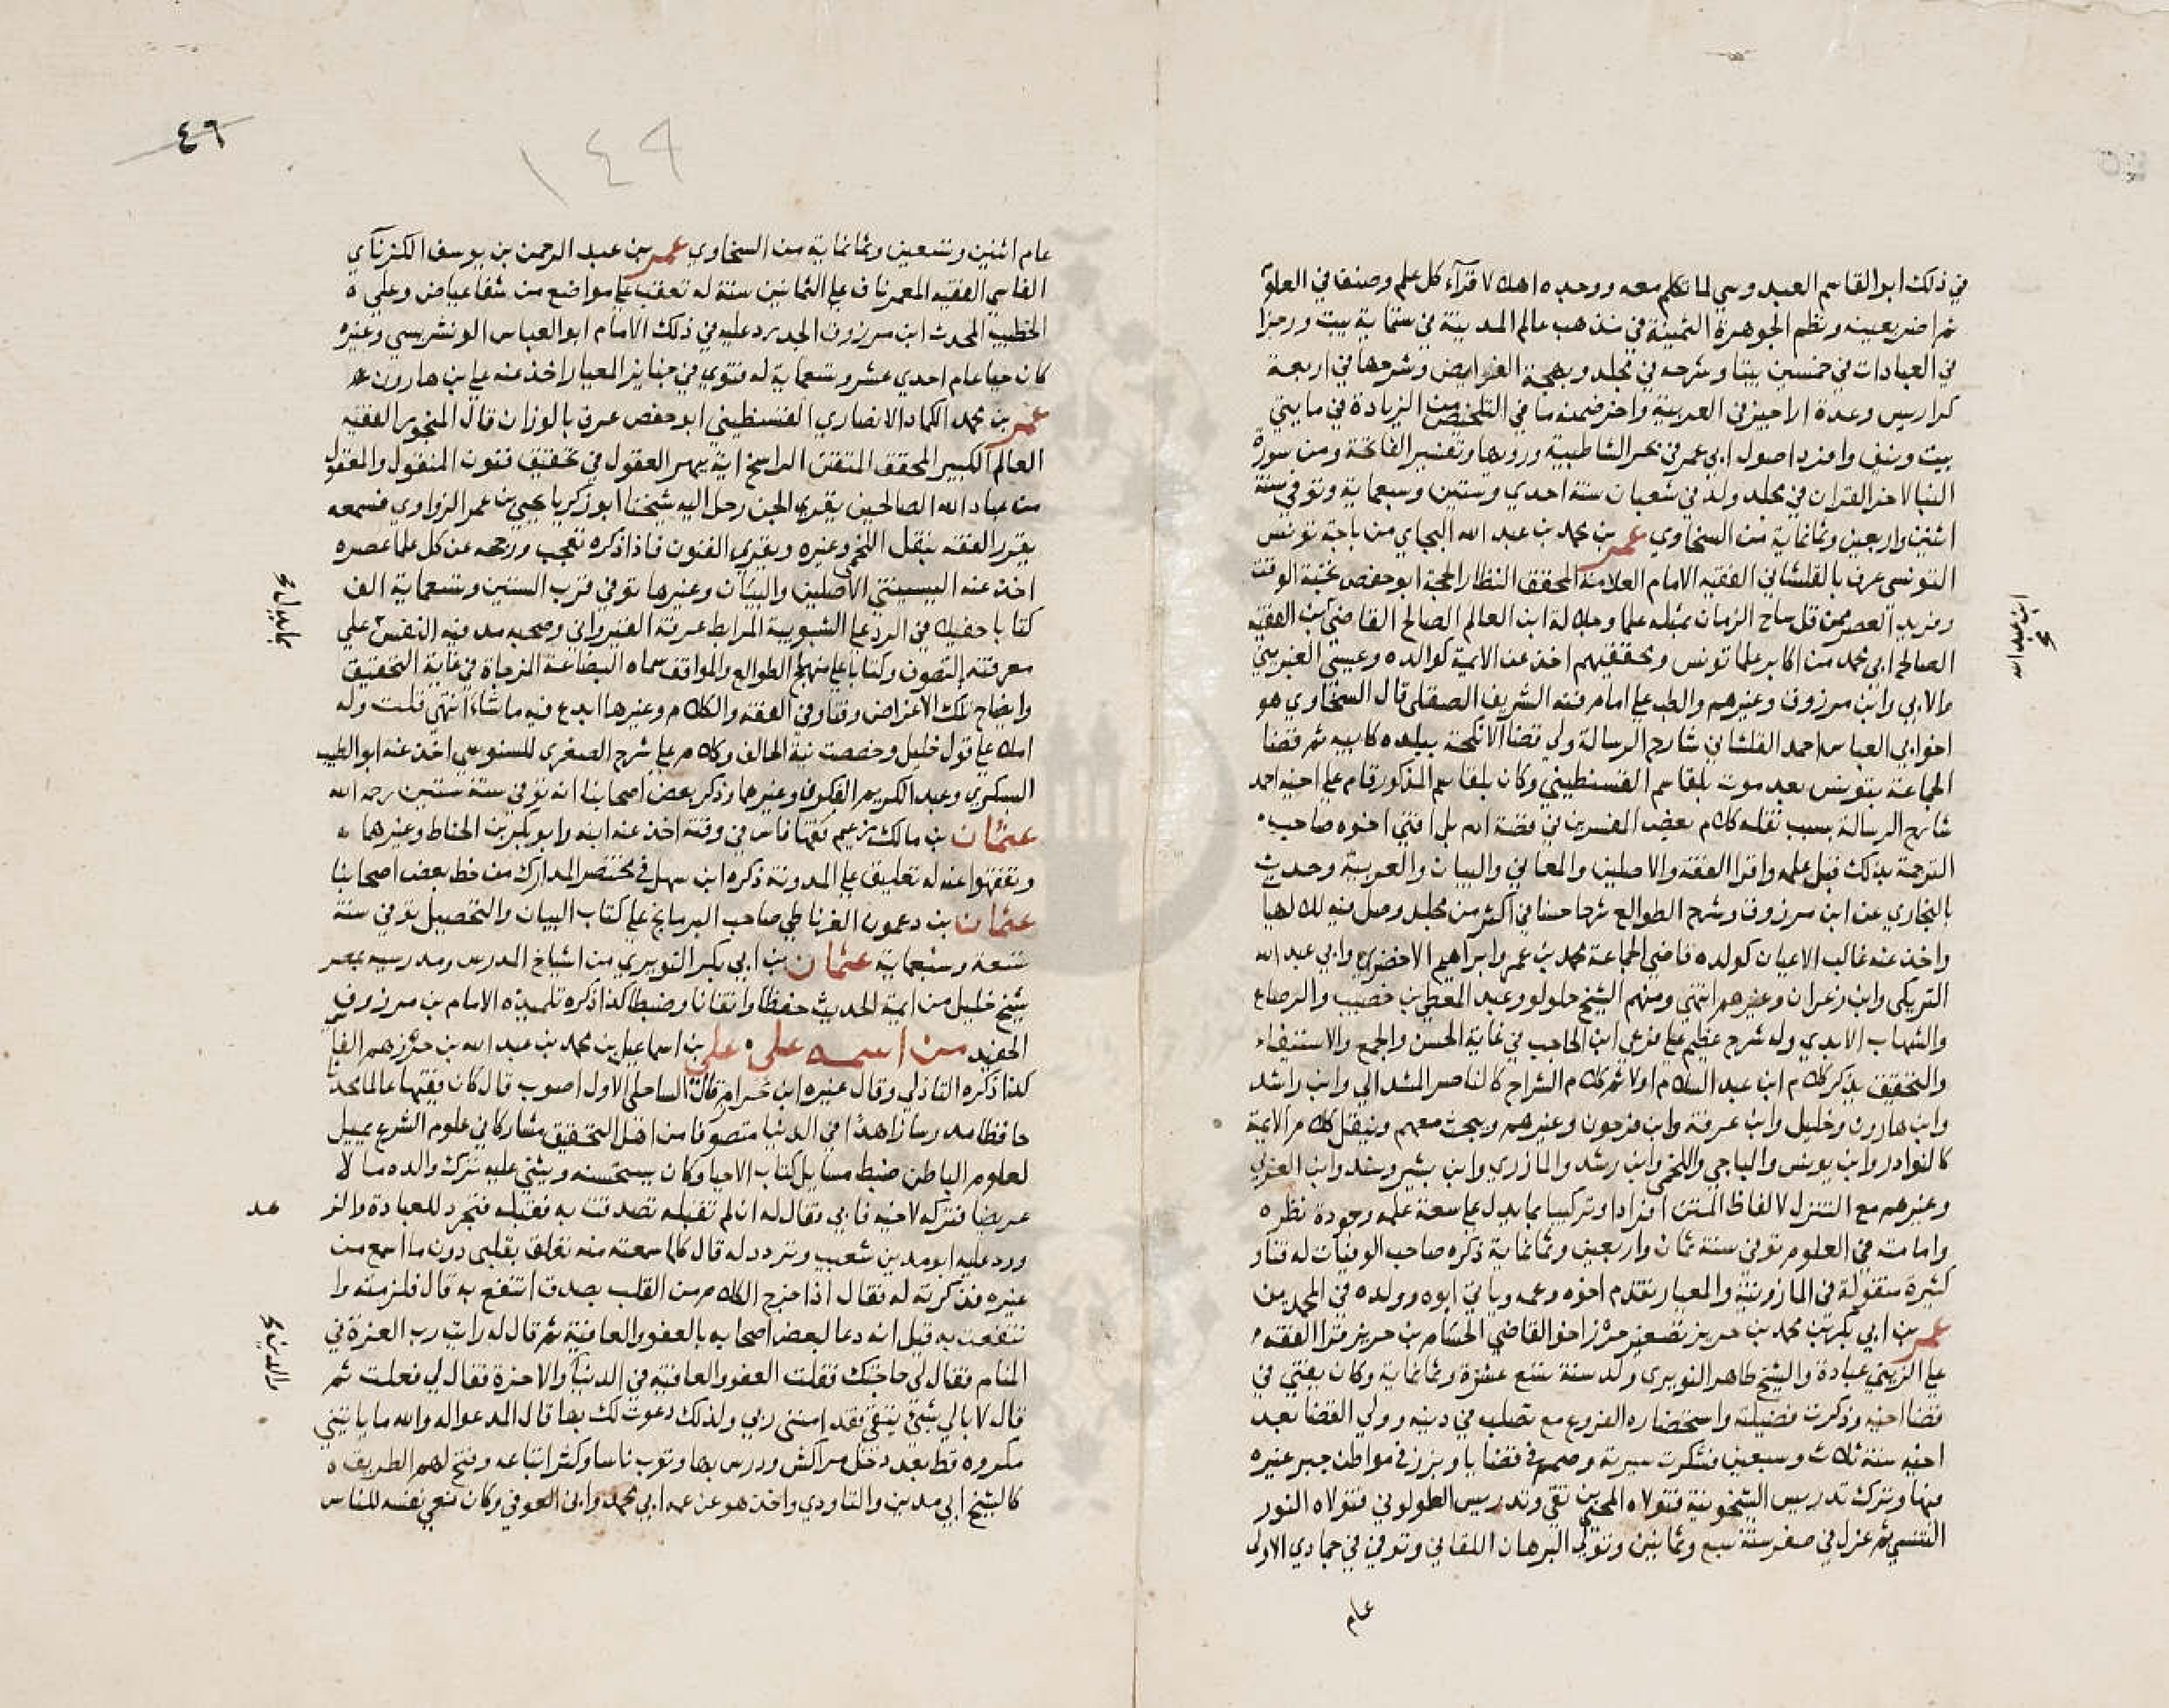 في ذلك ابو القاسم العبدوسي لما تكلم معه ووجده اهلا لاقرآء كل علم وصنف في العلو
نظم الجوهرة الثمينة في مذهب عالم المدينة في ستماية بيت ورجزا
في العبادات في خمسين بيتا وشرحه في مجلد وبهجة الفرايض وشرحها في اربعة
كراريس وعدة اراجيز في العربية واخر ضمنه ما في التلخيص من الزيادة في مايتي
بيت ونيف وافرد اصول ابي عمر في بحر الشاطبية ورويها وتفسير الفاتحة ومن سورة
النبا لاخر القران في مجلد ولد في شعبان سنة احدي وستين وسبعماية وتوفي سنة
اثنين واربعين وثمانماية من السخاوي عمر بن محمد بن عبد الله البجاي من باجة تونس
التونسي عرف بالقلشاني الفقيه الامام العلامة المحقق النظار الحجة ابو حفص نخبة الوقت
وفريد العصر ممن قل سماح الزمان بمثله علما وجلالة ابن العالم الصالح القاضي ابن الفقيه
الصالح ابي محمد من اكابر علما تونس ومحققيهم اخذ عن الايمة كوالده وعيسي الغبريني
والابي وابن مرزوق وغيرهم والطب علي امام فنه الشريف الصقلي قال السخاوي هو
اخو ابي العباس احمد القلشاني شارح الرسالة ولي قضا الانكحة ببلده كابيه ثم قضا
الجماعة بتونس بعد موت بلقاسم القسنطيني وكان بلقاسم المذكور قام علي اخيه احمد
شارح الرسالة بسبب نقله كلام بعض المفسرين في قصة ادم بل افتي اخوه صاحب
الترجمة بذلك قبل علمه واقرا الفقه والاصلين والمعاني والبيان والعربية وحدث
بالبخاري عن ابن مرزوق وشرح الطوالع شرحا حسنا في اكثر من مجلد وصل فيه للالهيا
واخذ عنه غالب الاعيان كولده قاضي الجماعة محمد بن عمر وابراهيم الاخضري وابي عبد الله
التريكي وابن زعران وغيرهم انتهي ومنهم الشيخ حلولو وعبد المعطي بن خصيب والرصاع
والشهاب الابدي وله شرح عظيم علي فرعي ابن الحاجب في غاية الحسن والجمع والاستيفاء
والتحقيق يذكر كلام ابن عبد السلام اولا ثم كلام الشراح كالناصر المشدالي وابن راشد
وابن هارون وخليل وابن عرفة وابن فرحون وغيرهم ويبحث معهم وينقل كلام الايمة
كالنوادر وابن يونس والباجي واللخمي وابن رشد والمازري وابن بشير وسند وابن العربي
وغيرهم مع التنزل لالفاظ المتن افرادا وتركيبا بما يدل علي سعة علمه وجودة نظره
وامامته في العلوم توفي سنة ثمان واربعين وثمانماية ذكره صاحب الوفيات له فتاو
كثيرة منقولة في المازونية والمعيار تقدم اخوه وعمه وياتي ابوه وولده في المحمدين
عمر بن ابي بكر بن محمد بن حريز تصغير حرز اخو القاضي الحسام بن حريز قرا الفقه
علي الزيني عبادة والشيخ طاهر النويري ولد سنة تسع عشرة وثمانماية وكان يفتي في
قضا اخيه وذكرت فضيلته واستحضاره الفروع مع تصلب في دينه وولي القضا بعد
اخيه سنة ثلاث وسبعين فشكرت سيرته وصمم في قضايا وبرز في مواطن جبر غيره
فيها وترك تدريس الشيخونية فتولاه المحبي بن تقي وتدريس الطولوني فتولاه النور
التنسي ثم عزل في صفر سنة سبع وثمانين وتولي البرهان اللقاني وتوفي في جمادي الاولي
عام
ابن عبد الله
صح
٤٦
١٤٩
عام اثنين وتسعين وثمانماية من السخاوي عمر بن عبد الرحمن بن يوسف الكزنآي
الفاسي الفقيه المعمر ناف علي الثمانين سنة له تعقب علي مواضع من شفا عياض وعلي
الخطيب المحدث ابن مرزوق الجد رد عليه في ذلك الامام ابو العباس الونشريسي وغيره
كان حيا عام احدي عشر وتسعماية له فتوي في جنايز المعيار اخذ عنه علي بن هارون
عمر بن محمد الكماد الانصاري القسنطيني ابو حفص عرف بالوزان قال المنجور الفقيه
العالم الكبير المحقق المتفنن الراسخ اية يبهر العقول في تحقيق فنون المنقول والمعقول
من عباد الله الصالحين يقري الجن رحل اليه شيخنا ابو زكريا يحيي بن عمر الزواوي فسمعه
يقرر الفقه بنقل اللخمي وغيره ويقري الفنون فاذا ذكره تعجب ورجحه عن كل علما عصره
اخذ عنه اليسيتني الاصلين والبيان وغيرها توفي قرب الستين وتسعماية الف
كتابا حفيلا في الرد علي الشبوبية المرابط عرفة القيرواني وصحبه مد فيه النفس علي
معرفته بالتصوف وكتابا علي منهج الطوالع والمواقف سماه البضاعة المزجاة في غاية التحقيق
وايضاح تلك الاغراض وفتاوي في الفقه والكلام وغيرها ابدع فيه ما شاء انتهي قلت وله
املا علي قول خليل وخصصت نية الحالف وكلام علي شرح الصغري للسنوسي اخذ عنه ابو الطيب
البسكري وعبد الكريم الفكون وغيرهما وذكر بعض اصحابنا انه توفي سنة ستين رحمه الله
عثمان بن مالك زعيم فقها فاس في وقته اخذ عنه ابنه وابو بكر بن الخناط وغيرهما
وتفقهوا عنه له تعليق علي المدونة ذكره ابن سهل في مختصر المدارك من خط بعض اصحابنا
عثمان بن دعمون الغرناطي صاحب البرنامج علي كتاب البيان والتحصيل توفي سنة
تسعة وسبعماية عثمان بن ابي بكر النويري من اشياخ المدرس ومدرسيه بعصر
شيخ خليل من ايمة الحديث حفظا واتقانا وضبطا كذا ذكره تلميذه الامام بن مرزوق
الحفيد من اسمه علي علي بن اسماعيل بن محمد بن عبد الله بن حرزهم الفا
كذا ذكره التاذلي وقال غيره ابن حرازم قال الساحلي الاول اصوب قال كان فقيها عالما محدثا
حافظا مدرسا زاهدا في الدنيا متصوفا من اهل التحقيق مشاركا في علوم الشرع يميل
لعلوم الباطن ضبط مسايل كتاب الاحيا وكان يستحسنه ويثني عليه ترك والده مالا
عريضا فتركه لاخيه فابي فقال له ان لم تقبله تصدقت به فقبله فتجرد للعبادة والز
ورد عليه ابو مدين شعيب وتردد له قال كلما سمعته منه تعلق بقلبي دون ما اسمع من
غيره فذكرته له فقال اذا خرج الكلام من القلب بصدق انتفع به قال فلزمته وا
نتفعت به قيل انه دعا لبعض اصحابه بالعفو والعافية ثم قال له رايت رب العزة في
المنام فقال لي حاجتك فقلت العفو والعافية في الدنيا والاخرة فقال لي فعلت ثم
قال لا ابالي بشيء يتقي فقد امنني ربي ولذلك دعوت لك بها قال المدعو له والله ما ياتيني
مكروه قط بعد دخل مراكش ودرس بها وتوب ناسا وكثر اتباعه وفتح لهم الطريقه
كالشيخ ابي مدين والتاودي واخذ هو عن عمه ابي محمد وابن العوفي وكان نعي نفسه للناس
هد